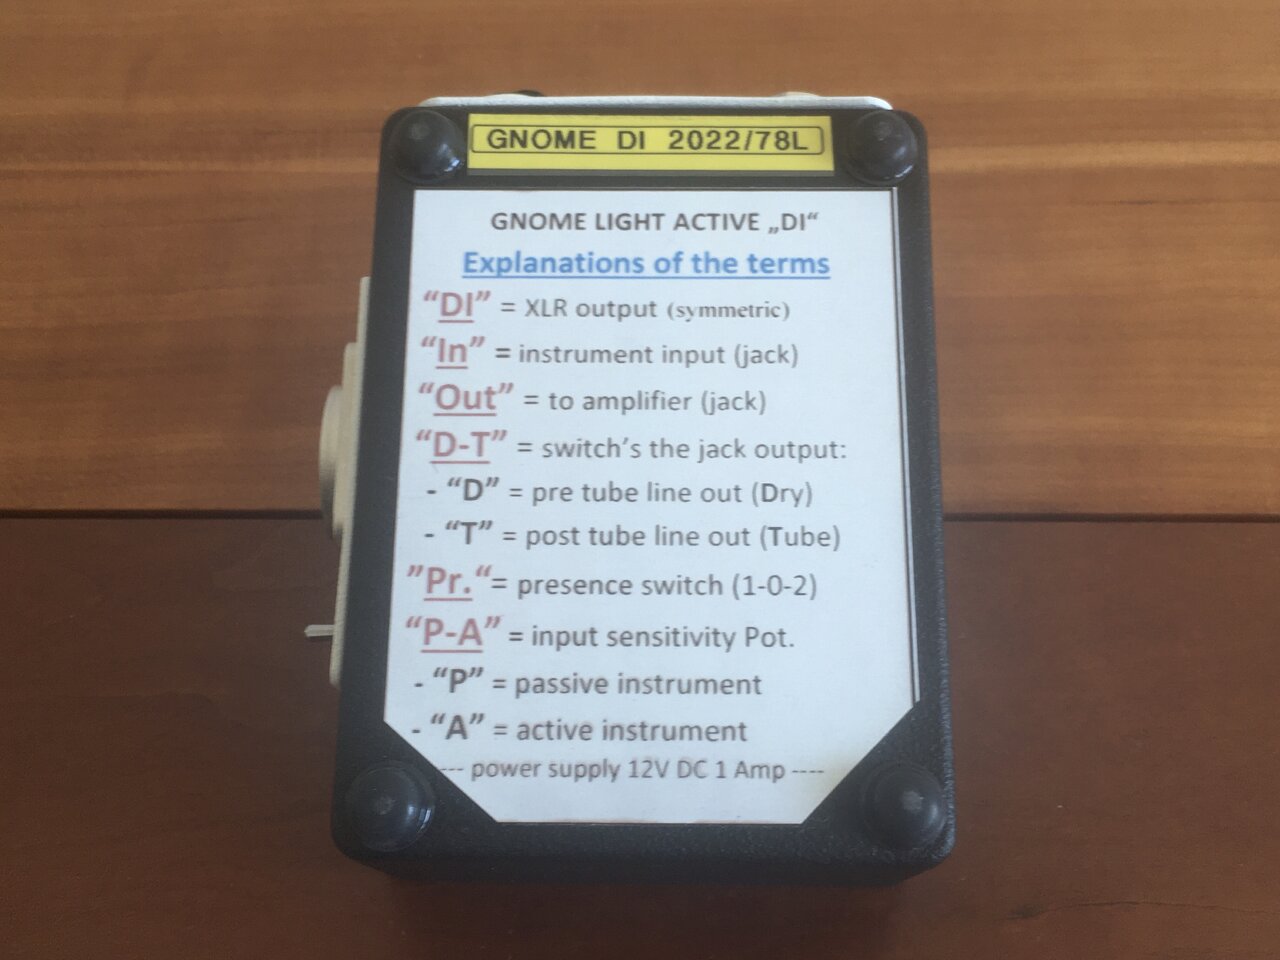 GNOME DI 2022/78L
GNOME LIGHT ACTIVE „DI“
Explanations of the terms
“DI” = XLR output (symmetric)
“In” = instrument input (jack)
“Out” = to amplifier (jack)
“D-T” = switch’s the jack output:
- “D” = pre tube line out (Dry)
- “T” = post tube line out (Tube)
”Pr.“= presence switch (1-0-2)
“P-A” = input sensitivity Pot.
- “P” = passive instrument
- “A” = active instrument
--- power supply 12V DC 1 Amp ----